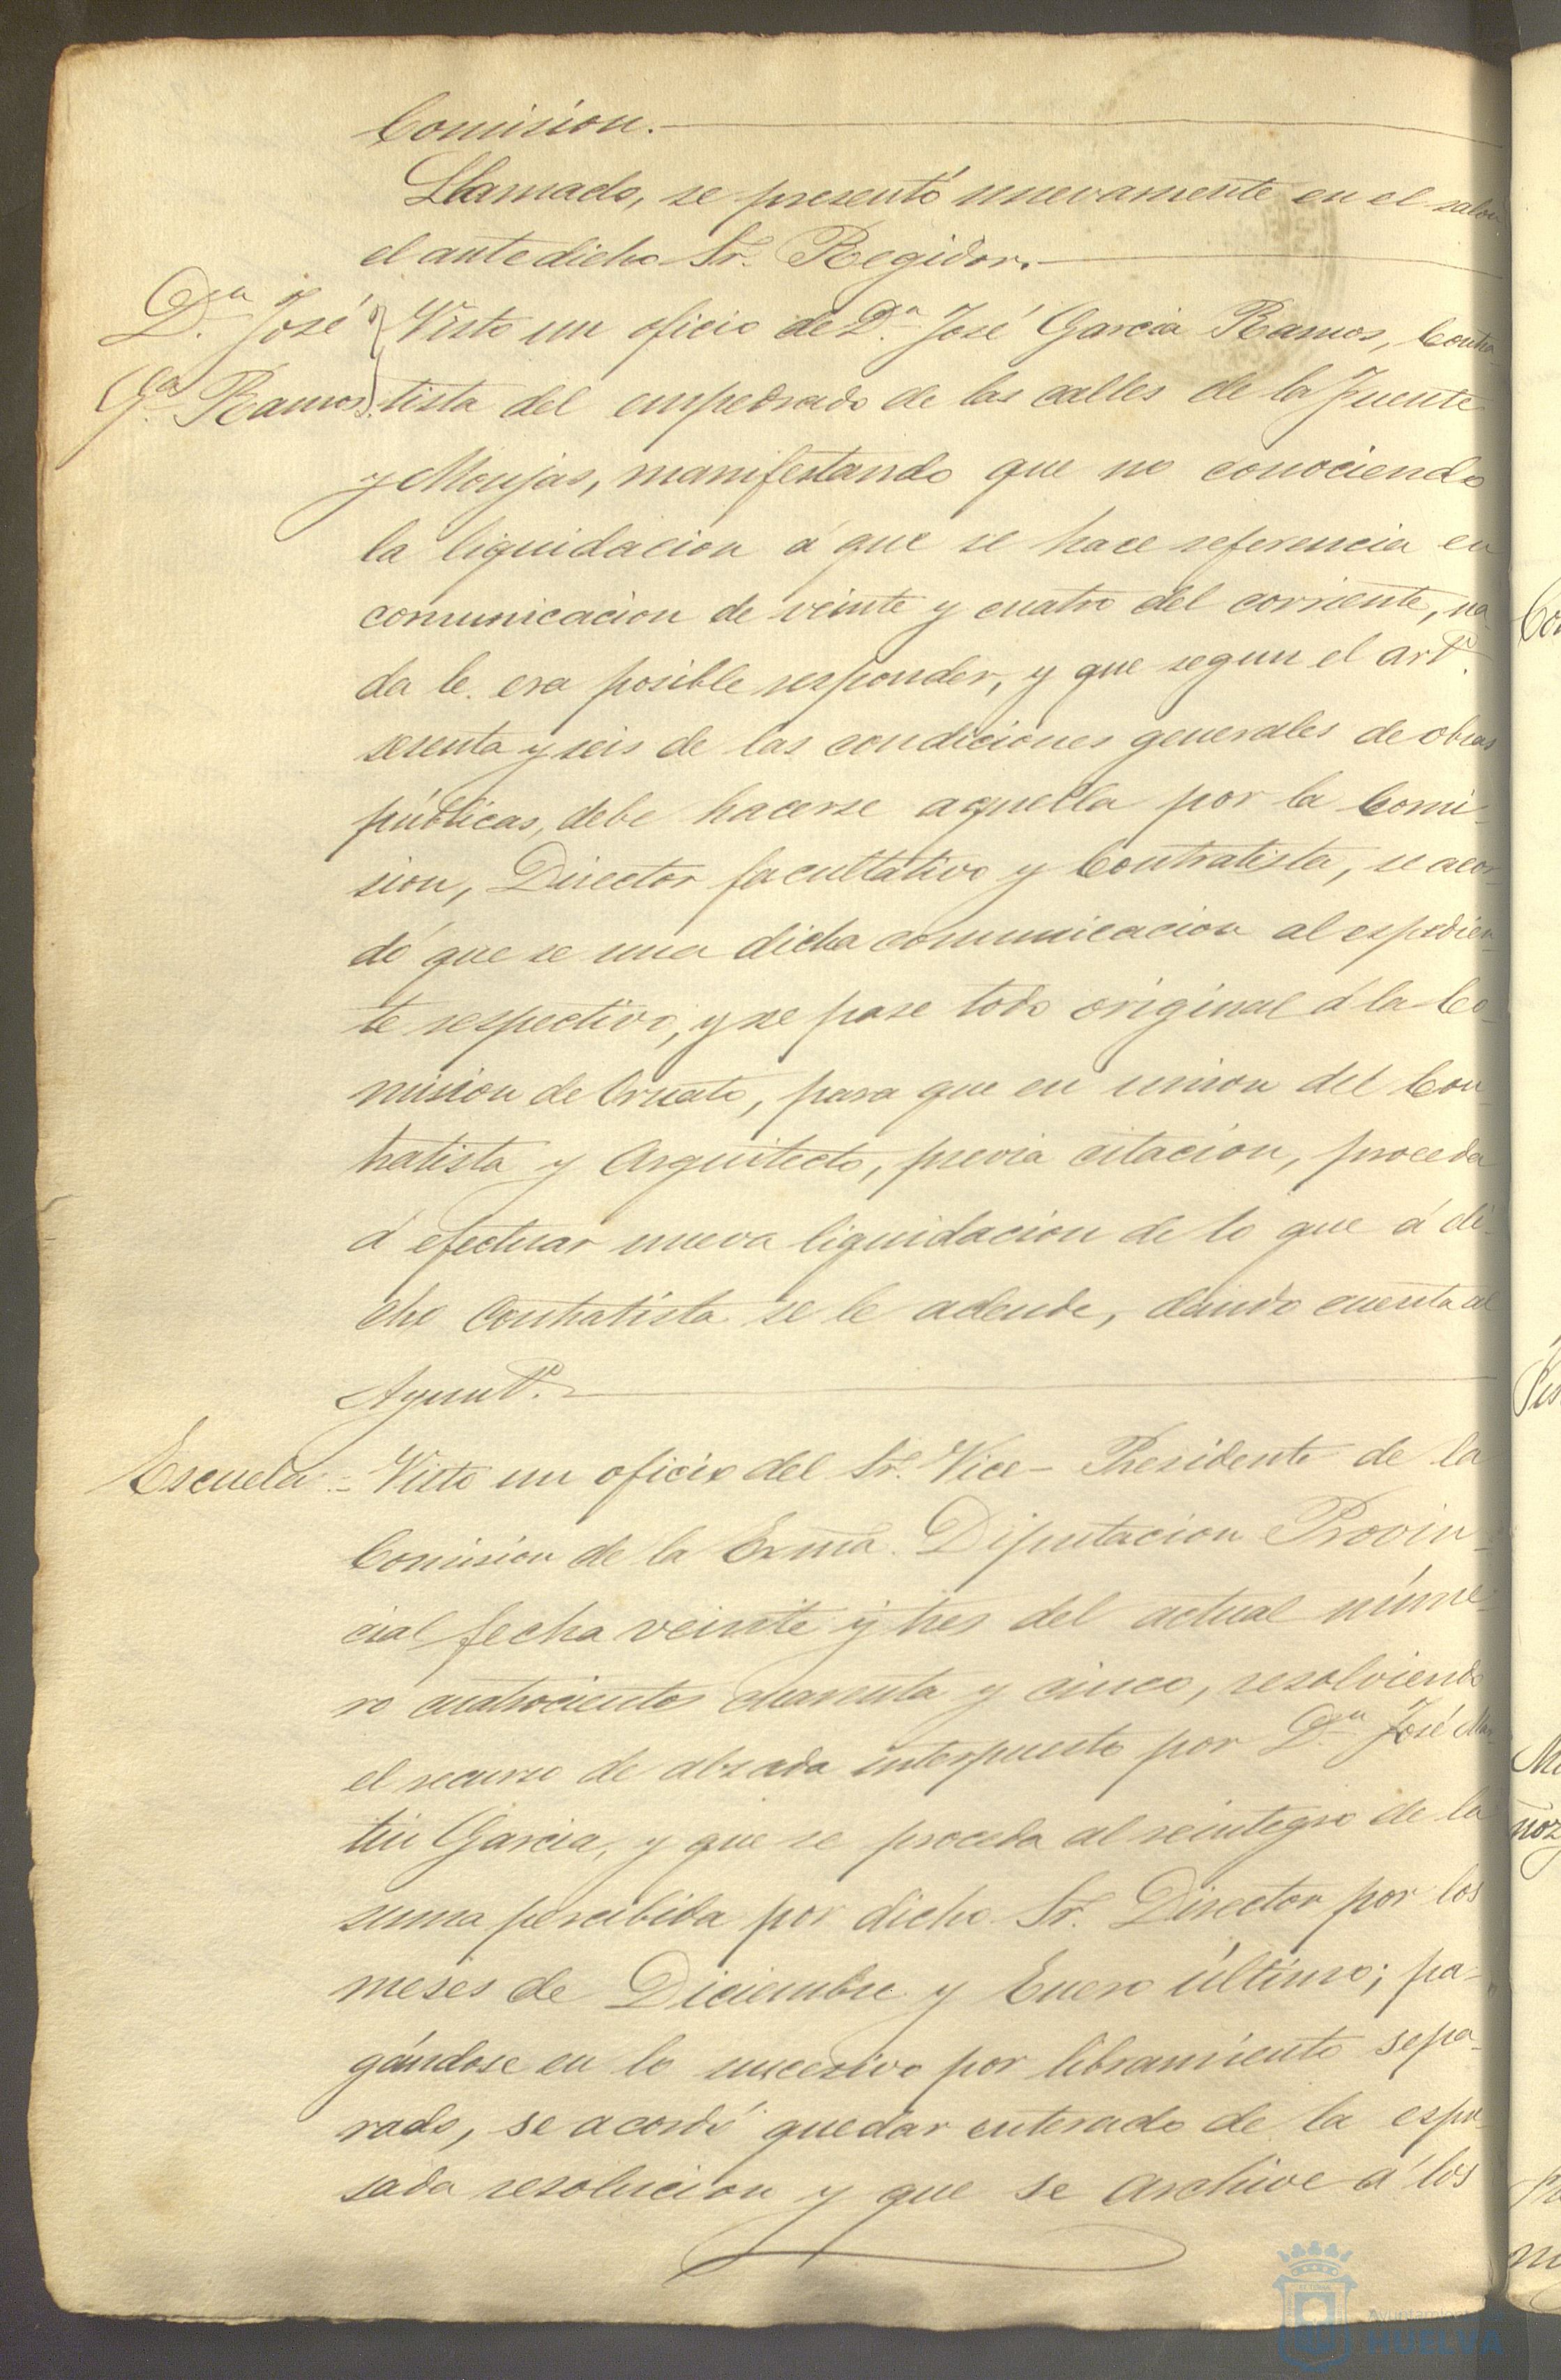 Comision.
Llamado, se presentó nuevamente en el salon
el antedicho Sr. Regidor.
D.n José
G.a Ramos
Visto un oficio de D.n José Garcia Ramos, Contra
tista del empedrado de las calles de la Fuente
y Monjas, manifestando que no conociendo
la liquidacion á que se hace referencia en
comunicacion de veinte y cuatro del corriente, na
da le era posible responder, y que segun el artº.
sesenta y seis de las condiciones generales de obras
públicas, debe hacerse aquella por la Comi-
sion, Director facultativo y Contratista, se acor-
dó que se una dicha comunicacion al espedien-
te respectivo, y se pase todo original á la Co-
mision de Ornato, para que en union del Con
tratista y Arquitecto, previa citacion, proceda
á efectuar nueva liquidacion de lo que á di-
cho Contratista se le adeude, dando cuenta al
Ayuntº.
Escuela = Visto un oficio del Sr. Vice-Presidente de la
Comision de la Exma. Diputacion Provin-
cial fecha veinte y tres del actual núme-
ro cuatrocientos cuarenta y cinco, resolviendo
el recurso de alzada interpuesto por D.n José Mar
tin Garcia, y que se proceda al reintegro de la
suma percibida por dicho Sr. Director por los
meses de Diciembre y Enero último; pa-
gándose en lo succesivo por libramiento sepa-
rado, se acordó quedar enterado de la espre
sada resolucion y que se archive á los
HUELVA